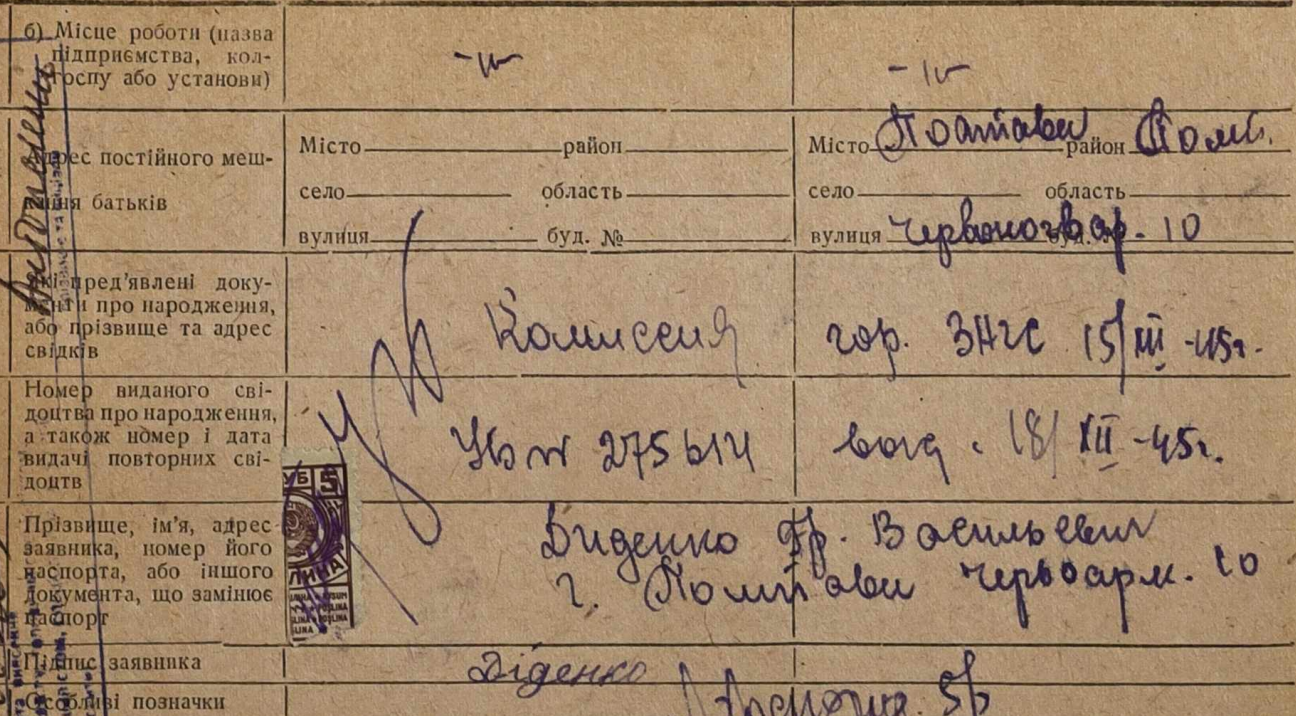 б) Місце роботи (назва
підприємства, кол-
госпу або установи)
-"-
-"-
Адрес постійного меш-
кання батьків
Місто район
село область
вулиця буд. №
Місто Полтава район Полт.
село область
вулиця Червоногвар. 10
Які пред'явлені доку-
менти про народження,
або прізвище та адрес
свідків
Комиссия гор. ЗАГС 15/III-45г.
Номер виданого сві-
доцтва про народження,
а також номер і дата
видачі повторних сві-
доцтв
№ 275614 18/XII-45г.
Прізвище, ім'я, адрес
заявника, номер його
паспорта, або іншого
документа, що замінює
паспорт
Диденко Гр. Васильевич
г. Полтава Червоарм. 10
Підпис заявника
Діденко
Особливі позначки
5